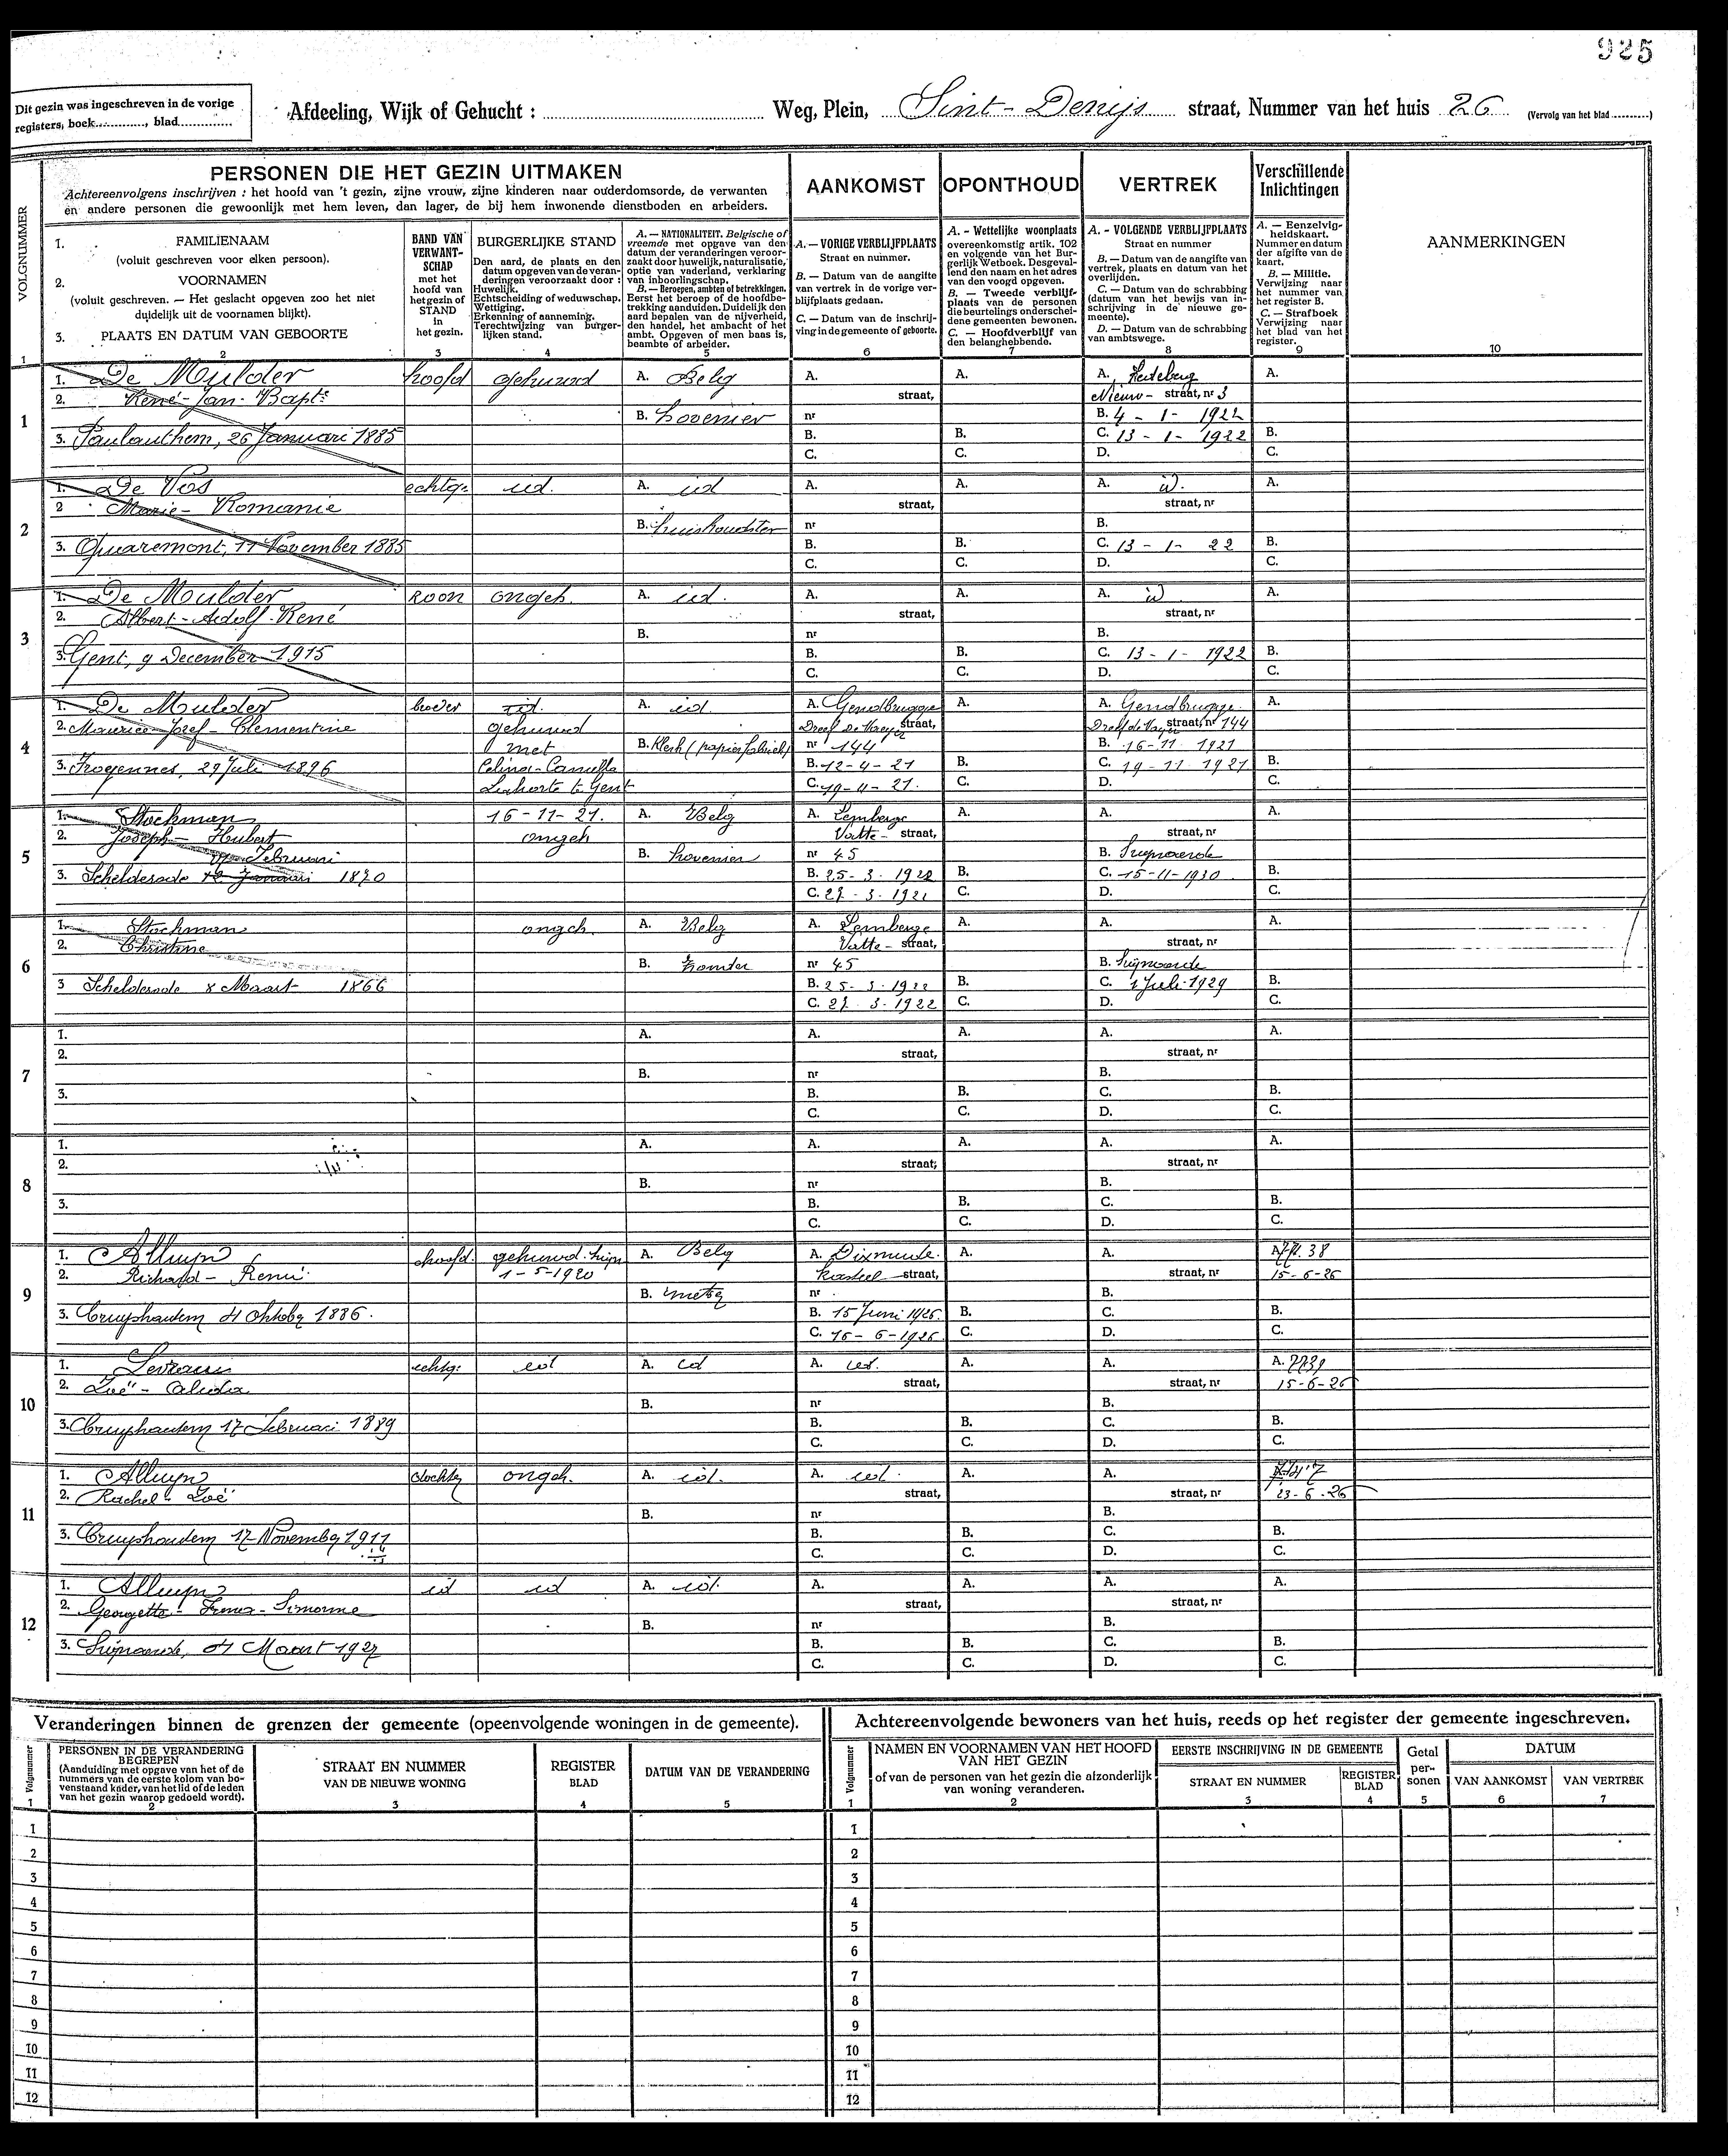 925
Dit gezin was ingeschreven in de vorige
registers, boek............, blad..............
Afdeeling, Wijk of Gehucht : Weg, Plein, Sint-Denijs straat, Nummer van het huis 26 (Vervolg van het blad ..........)
PERSONEN DIE HET GEZIN UITMAKEN
Achtereenvolgens inschrijven : het hoofd van 't gezin, zijne vrouw, zijne kinderen naar ouderdomsorde, de verwanten
en andere personen die gewoonlijk met hem leven, dan lager, de bij hem inwonende dienstboden en arbeiders.
AANKOMST
OPONTHOUD
VERTREK
Verschillende
Inlichtingen
VOLGNUMMER
1. FAMILIENAAM
(voluit geschreven voor elken persoon).
2. VOORNAMEN
(voluit geschreven. — Het geslacht opgeven zoo het niet
duidelijk uit de voornamen blijkt).
3. PLAATS EN DATUM VAN GEBOORTE
BAND VAN
VERWANT-
SCHAP
met het
hoofd van
het gezin of
STAND
in
het gezin.
BURGERLIJKE STAND
Den aard, de plaats en den
datum opgeven van de veran-
deringen veroorzaakt door :
Huwelijk.
Echtscheiding of weduwschap.
Wettiging.
Erkenning of aanneming.
Terechtwijzing van burger-
lijken stand.
A. — NATIONALITEIT. Belgische of
vreemde met opgave van den
datum der veranderingen veroor-
zaakt door huwelijk, naturalisatie,
optie van vaderland, verklaring
van inboorlingschap.
B. — Beroepen, ambten of betrekkingen.
Eerst het beroep of de hoofdbe-
trekking aanduiden. Duidelijk den
aard bepalen van de nijverheid,
den handel, het ambacht of het
ambt. Opgeven of men baas is,
beambte of arbeider.
A. — VORIGE VERBLIJFPLAATS
Straat en nummer.
B. — Datum van de aangifte
van vertrek in de vorige ver-
blijfplaats gedaan.
C. — Datum van de inschrij-
ving in de gemeente of geboorte.
A. - Wettelijke woonplaats
overeenkomstig artik. 102
en volgende van het Bur-
gerlijk Wetboek. Desgeval-
lend den naam en het adres
van den voogd opgeven.
B. — Tweede verblijf-
plaats van de personen
die beurtelings onderschei-
dene gemeenten bewonen.
C. — Hoofdverblijf van
den belanghebbende.
A. - VOLGENDE VERBLIJFPLAATS
Straat en nummer
B. — Datum van de aangifte van
vertrek, plaats en datum van het
overlijden.
C. — Datum van de schrabbing
(datum van het bewijs van in-
schrijving in de nieuwe ge-
meente).
D. — Datum van de schrabbing
van ambtswege.
A. — Eenzelvig-
heidskaart.
Nummer en datum
der afgifte van de
kaart.
B. — Militie.
Verwijzing naar
het nummer van
het register B.
C. — Strafboek
Verwijzing naar
het blad van het
register.
AANMERKINGEN
1 2 3 4 5 6 7 8 9 10
1
1. De Mulder hoofd gehuwd A. Belg A. A. A. Hedeberg A.
2. René-Jan-Bapte straat, Nieuw- straat, nr 3
B. hovenier nr B. 4 - 1 - 1922
3. Paulauthem, 26 Januari 1885 B. B. C. 13 - 1 - 1922 B.
C. C. D. C.
2
1. De Vos echtge id. A. id A. A. A. id. A.
2 Marie- Romanie straat, straat, nr
B. huishoudster nr B.
3. Quaremont, 11 November 1885 B. B. C. 13 - 1 - 22 B.
C. C. D. C.
3
1. De Mulder zoon ongeh. A. id. A. A. A. id A.
2. Albert-Adolf-René straat, straat, nr
B. nr B.
3. Gent, 9 December 1915 B. B. C. 13 - 1 - 1922 B.
C. C. D. C.
4
1. De Mulder broeder id. A. id. A. Gendbrugge A. A. Gendbrugge A.
2. Maurice-Jozef-Clementine gehuwd straat, straat, nr 144
met B. Klerk (papierfabriek) nr 144 B. 16-11 1921
3. 29 Juli 1896 B. 12-4-21 B. C. 19-11 1921 B.
te Gent C. 19-4-21. C. D. C.
5
1. Stockman 16-11-21. A. Belg A. Lemberge A. A. A.
2. Joseph- Hubert ongeh Vatte- straat, straat, nr
Februari B. hovenier nr 45 B. Sieynaerde
3. Schelderode Januari 1870 B. 25-3-1922 B. C. 15-11-1930 B.
C. 27-3-1921 C. D. C.
6
1. Stockman ongeh. A. Belg A. Lemberge A. A. A.
2. Christine Vatte- straat, straat, nr
B. nr 45 B.
3 Schelderode 8 Maart 1866 B. 25-3-1922 B. C. 1 Juli-1929 B.
C. 27-3-1922 C. D. C.
7
1. A. A. A. A. A.
2. straat, straat, nr
B. nr B.
3. B. B. C. B.
C. C. D. C.
8
1. A. A. A. A. A.
2. straat, straat, nr
B. nr B.
3. B. B. C. B.
C. C. D. C.
9
1. Alluyn hoofd. gehuwd A. Belg A. Dixmude. A. A. A. 38
2. Richard-Remi. 1-5-1920 Kasteel straat, straat, nr 15-6-26
B. nr B.
3. Cruyshautem 1886. B. 15 Juni 1926. B. C. B.
C. 16-6-1926 C. D. C.
10
1. echtg: id A. id A. id. A. A. A. 7739
2. Zoë- straat, straat, nr 15-6-26
B. nr B.
3. Cruyshautem 17 Februari 1889 B. B. C. B.
C. C. D. C.
11
1. Alluyn dochter ongeh. A. id. A. id. A. A.
2. Rachel-Zoë straat, straat, nr 23-6-26
B. nr B.
3. Cruyshautem 17 November 1911 B. B. C. B.
C. C. D. C.
12
1. Alluyn id id A. id. A. A. A. A.
2. Georgette-Irma-Simonne straat, straat, nr
B. nr B.
3. Maart 1927 B. B. C. B.
C. C. D. C.
Veranderingen binnen de grenzen der gemeente (opeenvolgende woningen in de gemeente).
Volgnummer
PERSONEN IN DE VERANDERING
BEGREPEN
(Aanduiding met opgave van het of de
nummers van de eerste kolom van bo-
venstaand kader, van het lid of de leden
van het gezin waarop gedoeld wordt).
STRAAT EN NUMMER
VAN DE NIEUWE WONING
REGISTER
BLAD
DATUM VAN DE VERANDERING
1 2 3 4 5
1
2
3
4
5
6
7
8
9
10
11
12
Achtereenvolgende bewoners van het huis, reeds op het register der gemeente ingeschreven.
Volgnummer
NAMEN EN VOORNAMEN VAN HET HOOFD
VAN HET GEZIN
of van de personen van het gezin die afzonderlijk
van woning veranderen.
EERSTE INSCHRIJVING IN DE GEMEENTE
STRAAT EN NUMMER
REGISTER
BLAD
Getal
per-
sonen
DATUM
VAN AANKOMST
VAN VERTREK
1 2 3 4 5 6 7
1
2
3
4
5
6
7
8
9
10
11
12